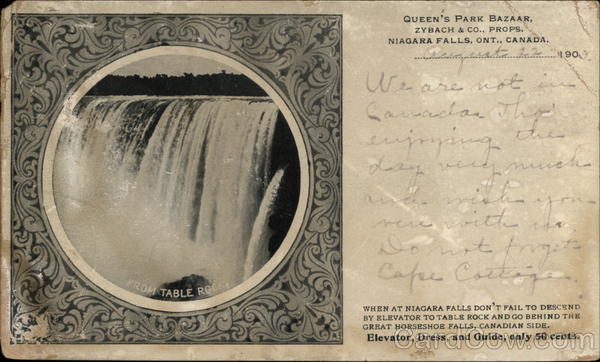 QUEEN'S PARK BAZAAR,
ZYBACH & CO., PROPS.
NIAGARA FALLS, ONT., CANADA.
22 190
We are not in
Canada. Tho'
enjoying the
day very much
and wish you
were with us.
Do not forget
Cape Cottage
FROM TABLE ROCK
WHEN AT NIAGARA FALLS DON'T FAIL TO DESCEND
BY ELEVATOR TO TABLE ROCK AND GO BEHIND THE
GREAT HORSESHOE FALLS, CANADIAN SIDE.
Elevator, Dress, and Guide, only 50 cents.
CardCow.com